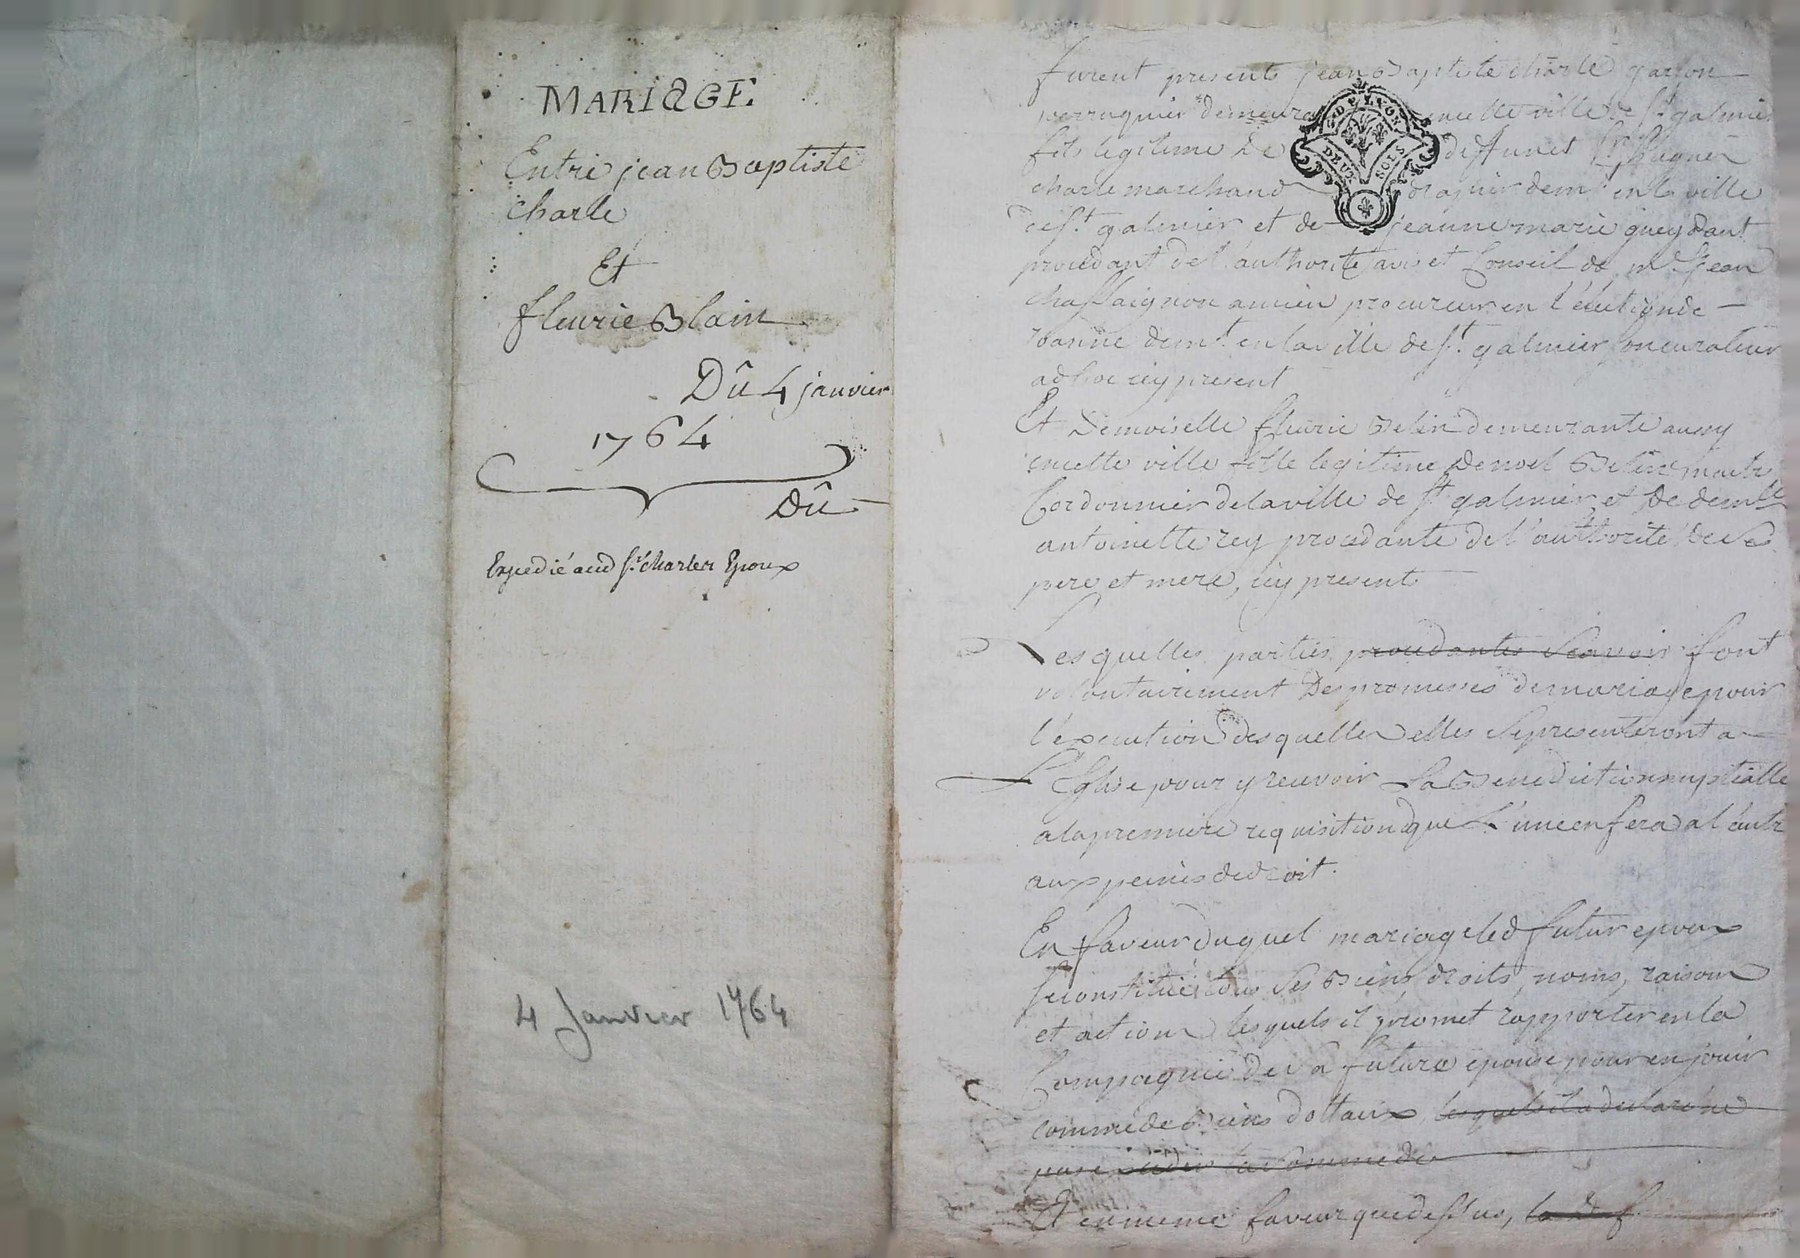 MARIAGE
Entre jean Baptiste
charle
Et
fleurie Blain
Dû 4 janvier
1764
Dû
Expedié aud Sr. charles Epoux
4 Janvier 1764
furent presents jean Baptiste charle garson
perruquier demeurant encette ville de St. galmier
fils legitime De deffunct Sr.
charle marchand demt. en la ville
de St. galmier et de jeanne marie gueydant
procedant de l'authorité avis et Conseil de me. jean
chassaignon ancien procureur en l'election de
roanne demt. en la ville de St. galmier son curateur
adhoc icy present
Et Demoiselle fleurie Belin demeurante aussy
encette ville fille legitime De noel Belin maitre
Cordonnier de la ville de St. galmier et De demlle
antoinette rey procedante de l'authorité de ses
pere et mere, icy present
Lesquelles parties procedantes scavoir font
volontairement Des promesses de mariage pour
l'execution desquelles elles se presenteront a
L'Eglise pour y recevoir La Benediction nuptialle
a la premiere requisition que L'une en fera a l'autre
aux peines de droit.
En faveur duquel mariage led futur epoux
se constitue tous ses Biens, droits, noms, raisons
et actions lesquels il promet rapporter en la
Compagnie de sa future epouse pour en jouir
comme de Biens dottaux, lesquels il a declaré ne
la somme de
Et en meme faveur que dessus,
DE LYON
DEUX SOLS